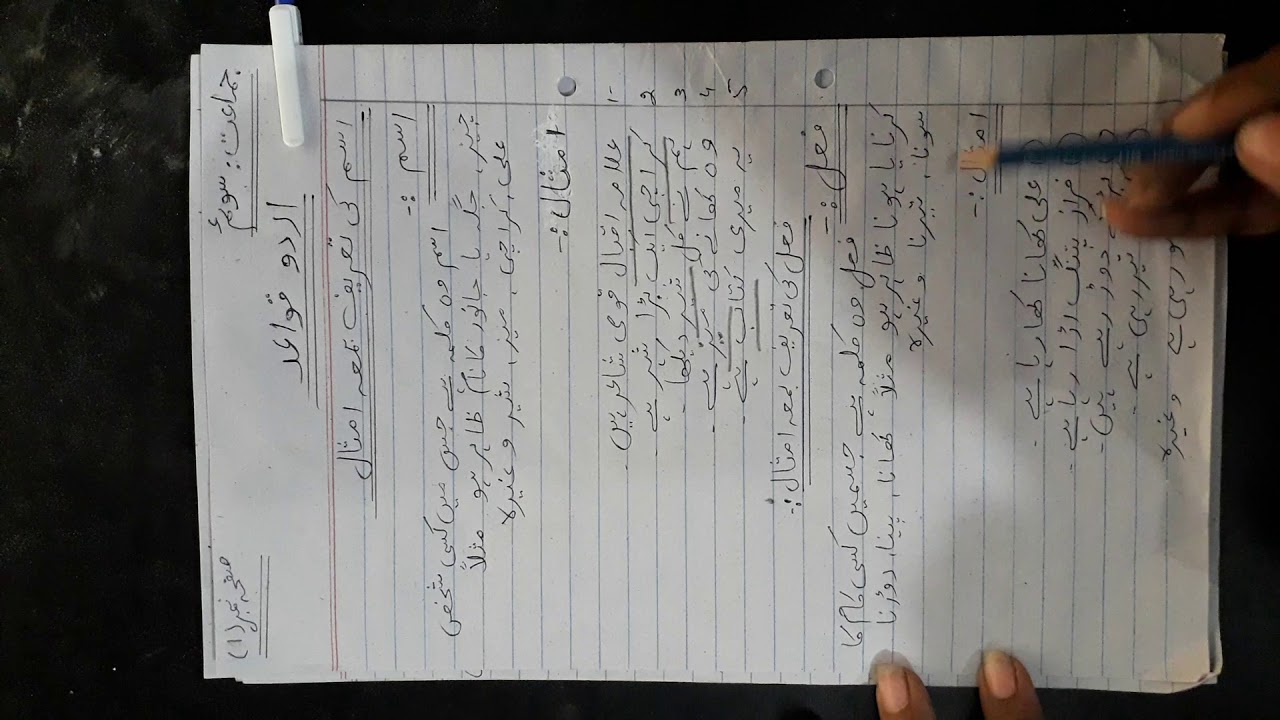 جماعت: سوئم
صفحہ نمبر (1)
اردو قواعد
اسم کی تعریف بمعہ امثال
اسم :-
اسم وہ کلمہ ہے جس میں کسی شخص
چیز، جگہ یا جانور کا نام ظاہر ہو مثلاً
علی، کراچی، میز، شیر وغیرہ
امثال :-
1- علامہ اقبال قومی شاعر ہیں
2 کراچی ایک بڑا شہر ہے
3 ہم نے کل شیر دیکھا -
4 وہ کھانے کی میز ہے -
5 یہ میری کتاب ہے -
فعل کی تعریف بمعہ امثال :-
فعل :-
فعل وہ کلمہ ہے جسمیں کسی کام کا
کرنا یا ہونا ظاہر ہو مثلاً کھانا، پینا، دوڑنا
سونا، تیرنا وغیرہ
امثال :-
علی کھانا کھا رہا ہے -
فراز پتنگ اڑا رہا ہے -
دوڑ رہے ہیں -
تیر رہی ہے -
رہی ہے وغیرہ